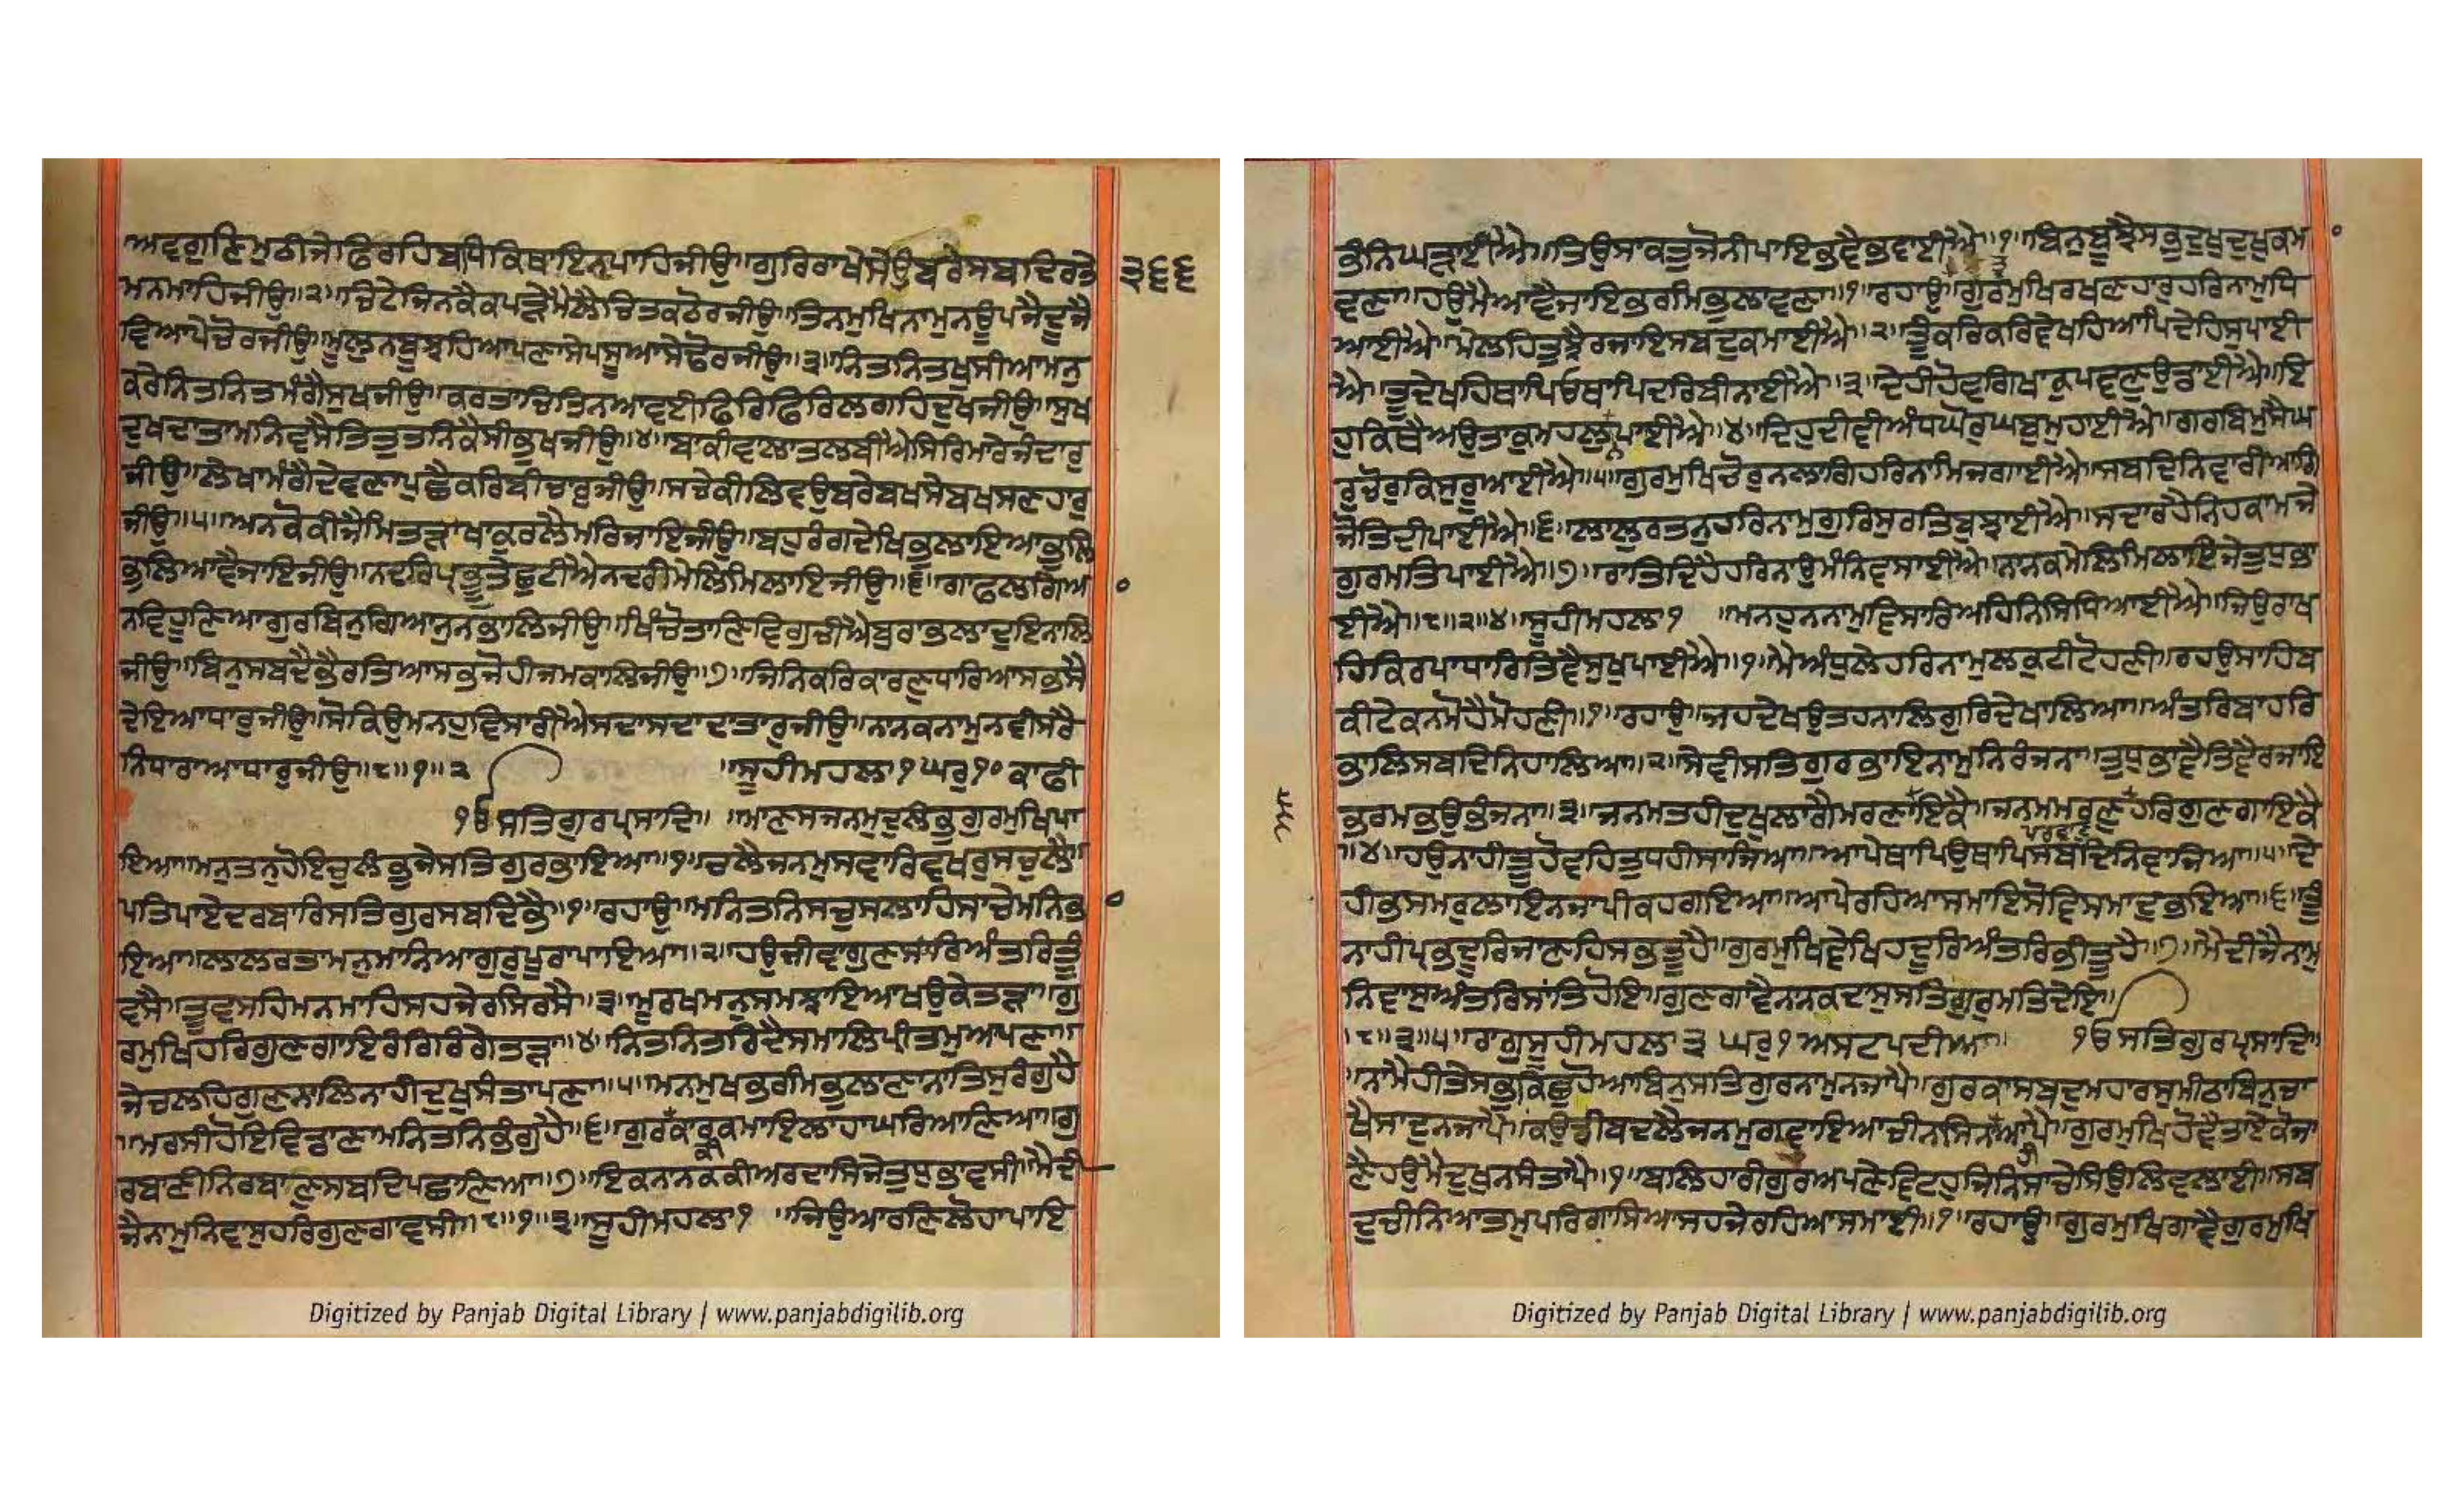 ਅਵਗੁਣਿਮੁਠੀਜੇਫਿਰਹਿਬਧਿਕਿਥਾਇਨਪਾਹਿਜੀਉ॥ਗੁਰਿਰਾਖੇਸੇਉਬਰੇਸਬਦਿਰਤੇ
੩੬੬
ਮਨਮਾਹਿਜੀਉ॥੨॥ਚਿਟੇਜਿਨਕੈਕਪੜੇਮੈਲੈਚਿਤਕਠੋਰਜੀਉ॥ਤਿਨਮੁਖਿਨਾਮੁਨਊਪਜੈਦੂਜੈ
ਵਿਆਪੇਚੋਰਜੀਉ॥ਮੂਲੁਨਬੂਝਹਿਆਪਣਾਸੇਪਸੂਆਸੇਢੋਰਜੀਉ॥੩॥ਨਿਤਨਿਤਖੁਸੀਆਮਨੁ
ਕਰੇਨਿਤਨਿਤਮੰਗੈਸੁਖਜੀਉ॥ਕਰਤਾਚਿਤਿਨਆਵਈਫਿਰਿਫਿਰਿਲਗਹਿਦੁਖਜੀਉ॥ਸੁਖ
ਦੁਖਦਾਤਾਮਨਿਵਸੈਤਿਤੁਤਨਿਕੈਸੀਭੁਖਜੀਉ॥੪॥ਬਾਕੀਵਾਲਾਤਲਬੀਐਸਿਰਿਮਾਰੇਜੰਦਾਰੁ
ਜੀਉ॥ਲੇਖਾਮੰਗੈਦੇਵਣਾਪੁਛੈਕਰਿਬੀਚਾਰੁਜੀਉ॥ਸਚੇਕੀਲਿਵਉਬਰੇਬਖਸੇਬਖਸਣਹਾਰੁ
ਜੀਉ॥੫॥ਅਨਕੋਕੀਜੈਮਿਤੜਾਖਾਕੁਰਲੈਮਰਿਜਾਇਜੀਉ॥ਬਹੁਰੰਗਦੇਖਿਭੁਲਾਇਆਭੁਲਿ
ਭੁਲਿਆਵੈਜਾਇਜੀਉ॥ਨਦਰਿਪ੍ਰਭੂਤੇਛੁਟੀਐਨਦਰੀਮੇਲਿਮਿਲਾਇਜੀਉ॥੬॥ਗਾਫਲਗਿਆ
ਨਵਿਹੂਣਿਆਗੁਰਬਿਨੁਗਿਆਨੁਨਭਾਲਿਜੀਉ॥ਖਿੰਚੋਤਾਣਿਵਿਗੁਚੀਐਬੁਰਾਭਲਾਦੁਇਨਾਲਿ
ਜੀਉ॥ਬਿਨੁਸਬਦੈਭੈਰਤਿਆਸਭਜੋਹੀਜਮਕਾਲਿਜੀਉ॥੭॥ਜਿਨਿਕਰਿਕਾਰਣੁਧਾਰਿਆਸਭਸੈ
ਦੇਇਆਧਾਰੁਜੀਉ॥ਸੋਕਿਉਮਨਹੁਵਿਸਾਰੀਐਸਦਾਸਦਾਦਾਤਾਰੁਜੀਉ॥ਨਾਨਕਨਾਮੁਨਵੀਸਰੈ
ਨਿਧਾਰਾਆਧਾਰੁਜੀਉ॥੮॥੧॥੨ ॥ਸੂਹੀਮਹਲਾ੧ਘਰੁ੧੦ਕਾਫੀ
ੴਸਤਿਗੁਰਪ੍ਰਸਾਦਿ॥ ॥ਮਾਣਸਜਨਮੁਦੁਲੰਭੁਗੁਰਮੁਖਿਪਾ
ਇਆ॥ਮਨੁਤਨੁਹੋਇਚੁਲੰਭੁਜੇਸਤਿਗੁਰਭਾਇਆ॥੧॥ਚਲੈਜਨਮੁਸਵਾਰਿਵਖਰੁਸਚੁਲੈ
ਪਤਿਪਾਏਦਰਬਾਰਿਸਤਿਗੁਰਸਬਦਿਭੈ॥੧॥ਰਹਾਉ॥ਮਨਿਤਨਿਸਚੁਸਲਾਹਿਸਾਚੇਮਨਿਭਾ
ਇਆ॥ਲਾਲਰਤਾਮਨੁਮਾਨਿਆਗੁਰੁਪੂਰਾਪਾਇਆ॥੨॥ਹਉਜੀਵਾਗੁਣਸਾਰਿਅੰਤਰਿਤੂੰ
ਵਸੈ॥ਤੂਵਸਹਿਮਨਮਾਹਿਸਹਜੇਰਸਿਰਸੈ॥੩॥ਮੂਰਖਮਨਸਮਝਾਇਆਖਉਕੇਤੜਾ॥ਗੁ
ਰਮੁਖਿਹਰਿਗੁਣਗਾਇਰੰਗਿਰੰਗੇਤੜਾ॥੪॥ਨਿਤਨਿਤਰਿਦੈਸਮਾਲਿਪ੍ਰੀਤਮੁਆਪਣਾ॥
ਜੇਚਲਹਿਗੁਣਨਾਲਿਨਾਹੀਦੁਖੁਸੰਤਾਪਣਾ॥੫॥ਮਨਮੁਖਭਰਮਿਭੁਲਾਣਾਨਾਤਿਸੁਰੰਗੁਹੈ
॥ਮਰਸੀਹੋਇਵਿਡਾਣਾਮਨਿਤਨਿਭੰਗੁਹੈ॥੬॥ਗੁਰਕੀਕਾਰਕਮਾਇਲਾਹਾਘਰਿਆਣਿਆ॥ਗੁ
ਰਬਾਣੀਨਿਰਬਾਣੁਸਬਦਿਪਛਾਣਿਆ॥੭॥ਇਕਨਾਨਕਕੀਅਰਦਾਸਿਜੇਤੁਧੁਭਾਵਸੀ॥ਮੈਦੀ
ਜੈਨਾਮੁਨਿਵਾਸੁਹਰਿਗੁਣਗਾਵਸੀ॥੮॥੧॥੩॥ਸੂਹੀਮਹਲਾ੧ ॥ਜਿਉਆਰਣਿਲੋਹਾਪਾਇ
ਭੰਨਿਘੜਾਈਐ॥ਤਿਉਸਾਕਤੁਜੋਨੀਪਾਇਭਵੈਭਵਾਈਐ॥੧॥ਬਿਨੁਬੂਝੈਸਭੁਦੁਖੁਦੁਖੁਕਮਾ
ਵਣਾ॥ਹਉਮੈਆਵੈਜਾਇਭਰਮਿਭੁਲਾਵਣਾ॥੧॥ਰਹਾਉ॥ਗੁਰਮੁਖਿਰਖਣਹਾਰੁਹਰਿਨਾਮੁਧਿ
ਆਈਐ॥ਮੇਲਹਿਤੁਝੈਰਜਾਇਸਬਦੁਕਮਾਈਐ॥੨॥ਤੂੰਕਰਿਕਰਿਵੇਖਹਿਆਪਿਦੇਹਿਸੁਪਾਈ
ਐ॥ਤੂਦੇਖਹਿਥਾਪਿਉਥਾਪਿਦਰਿਬੀਨਾਈਐ॥੩॥ਦੇਹੀਹੋਵਗਿਖਾਕੁਪਵਣੁਉਡਾਈਐ॥ਇ
ਹੁਕਿਥੈਅਉਤਾਕੁਮਹਲੁਨਪਾਈਐ॥੪॥ਦਿਹੁਦੀਵੀਅੰਧਘੋਰੁਘਬੁਮੁਹਾਈਐ॥ਗਰਬਿਮੁਸੈਘ
ਰੁਚੋਰੁਕਿਸੁਰੂਆਈਐ॥੫॥ਗੁਰਮੁਖਿਚੋਰੁਨਲਾਗਿਹਰਿਨਾਮਿਜਗਾਈਐ॥ਸਬਦਿਨਿਵਾਰੀਆਗਿ
ਜੋਤਿਦੀਪਾਈਐ॥੬॥ਲਾਲੁਰਤਨੁਹਰਿਨਾਮੁਗੁਰਿਸੁਰਤਿਬੁਝਾਈਐ॥ਸਦਾਰਹੈਨਿਹਕਾਮਜੇ
ਗੁਰਮਤਿਪਾਈਐ॥੭॥ਰਾਤਿਦਿਹੈਹਰਿਨਾਉਮੰਨਿਵਸਾਈਐ॥ਨਾਨਕਮੇਲਿਮਿਲਾਇਜੇਤੁਧੁਭਾ
ਈਐ॥੮॥੨॥੪॥ਸੂਹੀਮਹਲਾ੧ ॥ਮਨਹੁਨਨਾਮੁਵਿਸਾਰਿਅਹਿਨਿਸਿਧਿਆਈਐ॥ਜਿਉਰਾਖ
ਹਿਕਿਰਪਾਧਾਰਿਤਿਵੈਸੁਖਪਾਈਐ॥੧॥ਮੈਅੰਧੁਲੇਹਰਿਨਾਮੁਲਕੁਟੀਟੋਹਣੀ॥ਰਹਉਸਾਹਿਬ
ਕੀਟੇਕਨਮੋਹੈਮੋਹਣੀ॥੧॥ਰਹਾਉ॥ਜਹਦੇਖਉਤਹਨਾਲਿਗੁਰਿਦੇਖਾਲਿਆ॥ਅੰਤਰਿਬਾਹਰਿ
ਭਾਲਿਸਬਦਿਨਿਹਾਲਿਆ॥੨॥ਸੇਵੀਸਤਿਗੁਰਭਾਇਨਾਮੁਨਿਰੰਜਨਾ॥ਤੁਧੁਭਾਵੈਤਿਵੈਰਜਾਇ
ਭਰਮੁਭਉਭੰਜਨਾ॥੩॥ਜਨਮਤਹੀਦੁਖੁਲਾਗੈਮਰਣਾਇਕੈ॥ਜਨਮਮਰਣੁਹਰਿਗੁਣਗਾਇਕੈ
ਪਰਵਾਣੁ
॥੪॥ਹਉਨਾਹੀਤੂਹੋਵਹਿਤੁਧਹੀਸਾਜਿਆ॥ਆਪੇਥਾਪਿਉਥਾਪਿਸਬਦਿਨਿਵਾਜਿਆ॥੫॥ਦੇ
ਹੀਭਸਮਰੁਲਾਇਨਜਾਪੀਕਹਗਇਆ॥ਆਪੇਰਹਿਆਸਮਾਇਸੋਵਿਸਮਾਦੁਭਇਆ॥੬॥ਤੂੰ
ਨਾਹੀਪ੍ਰਭਦੂਰਿਜਾਣਹਿਸਭਤੂਹੈ॥ਗੁਰਮੁਖਿਵੇਖਿਹਦੂਰਿਅੰਤਰਿਭੀਤੂਹੈ॥੭॥ਮੈਦੀਜੈਨਾਮੁ
ਨਿਵਾਸੁਅੰਤਰਿਸਾਂਤਿਹੋਇ॥ਗੁਣਗਾਵੈਨਾਨਕਦਾਸੁਸਤਿਗੁਰੁਮਤਿਦੇਇ॥
॥੮॥੩॥੫॥ਰਾਗੁਸੂਹੀਮਹਲਾ੩ਘਰੁ੧ਅਸਟਪਦੀਆ॥ ੴਸਤਿਗੁਰਪ੍ਰਸਾਦਿ॥
॥ਨਾਮੈਹੀਤੇਸਭੁਕਿਛੁਹੋਆਬਿਨੁਸਤਿਗੁਰਨਾਮੁਨਜਾਪੈ॥ਗੁਰਕਾਸਬਦੁਮਹਾਰਸੁਮੀਠਾਬਿਨੁਚਾ
ਖੈਸਾਦੁਨਜਾਪੈ॥ਕਉਡੀਬਦਲੈਜਨਮੁਗਵਾਇਆਚੀਨਸਿਨਾਆਪੈ॥ਗੁਰਮੁਖਿਹੋਵੈਤਾਏਕੋਜਾ
ਣੈਹਉਮੈਦੁਖੁਨਸੰਤਾਪੈ॥੧॥ਬਲਿਹਾਰੀਗੁਰਅਪਣੇਵਿਟਹੁਜਿਨਿਸਾਚੇਸਿਉਲਿਵਲਾਈ॥ਸਬ
ਦੁਚੀਨਿਆਤਮੁਪਰਿਗਾਸਿਆਸਹਜੇਰਹਿਆਸਮਾਈ॥੧॥ਰਹਾਉ॥ਗੁਰਮੁਖਿਗਾਵੈਗੁਰਮੁਖਿ
Digitized by Panjab Digital Library | www.panjabdigilib.org
Digitized by Panjab Digital Library | www.panjabdigilib.org